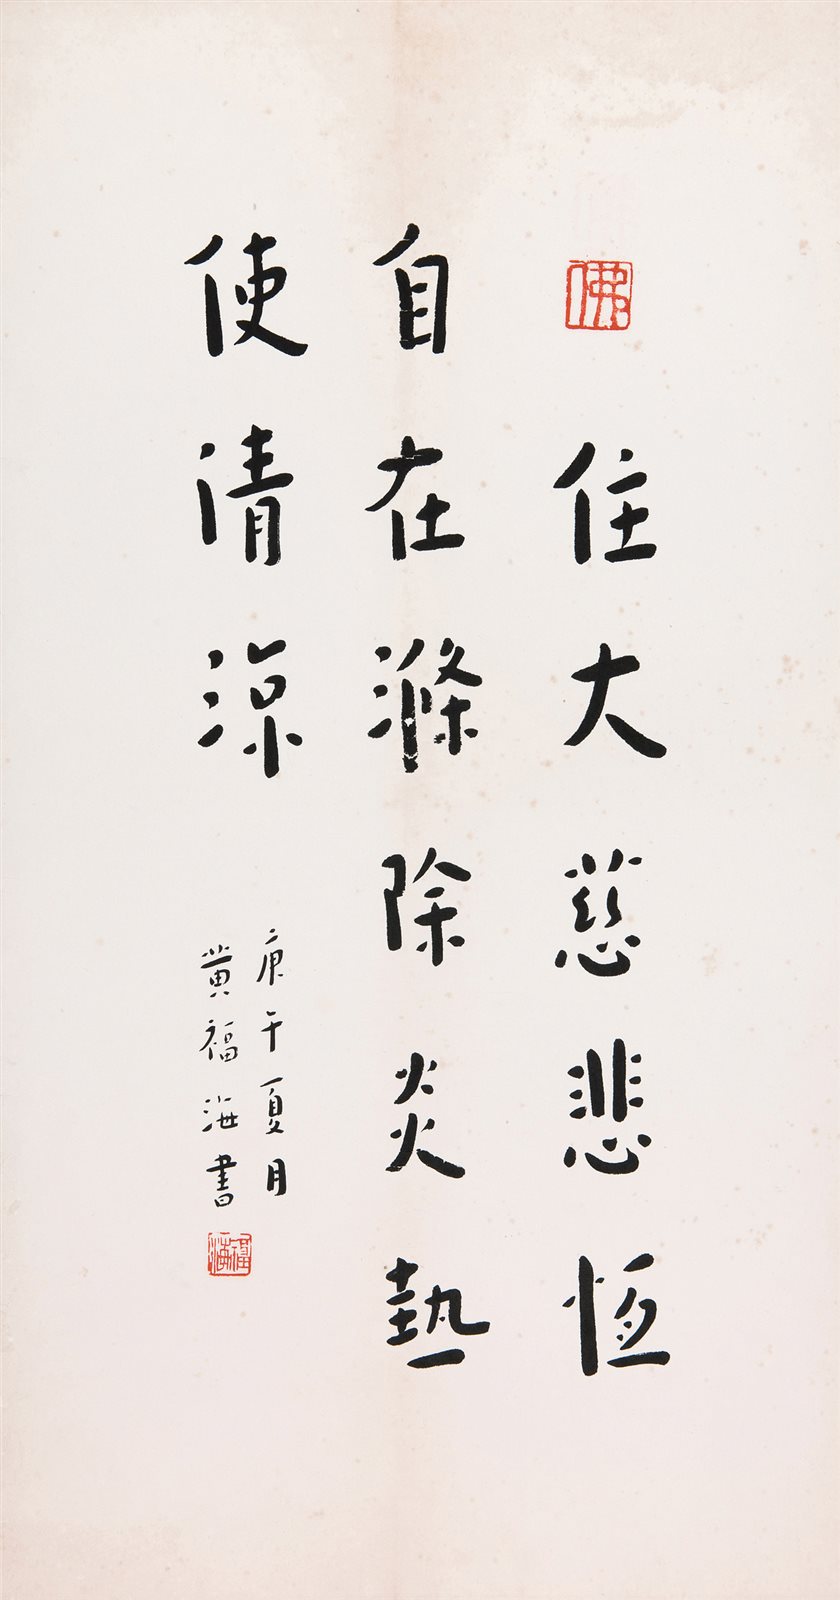 佛
住大慈悲恆
自在滌除炎熱
使清涼
庚午夏月
黄福海書
福海